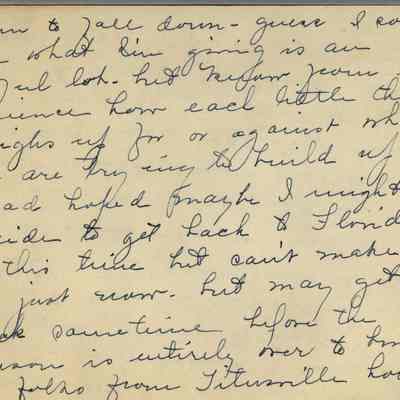 to fall down - guess I co
what I'm giving is an
ful lot - but know from
ience how each little th
ighs up for or against wh
are trying to build up
ad hoped maybe I might
cide to get back to Florid
this time but can't make
just now - but may get
ck sometime before the
ason is entirely over to
folks from Titusville ho